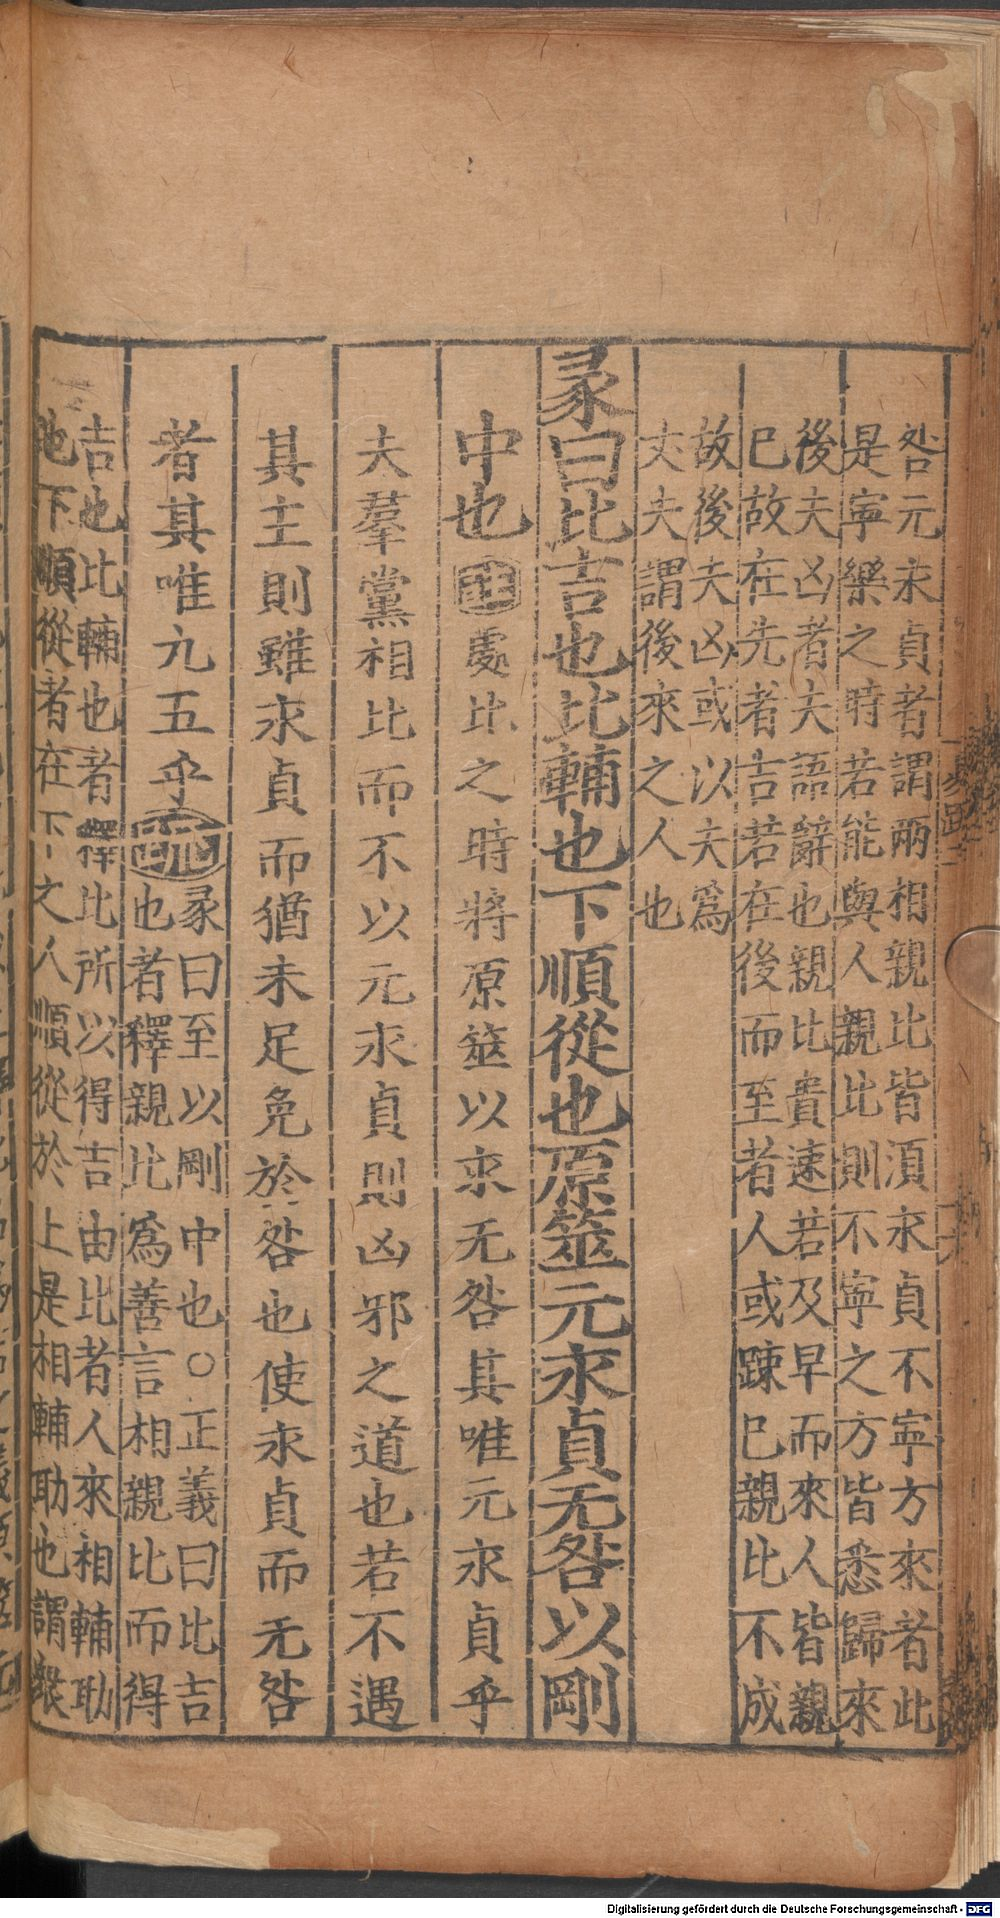 咎元永貞者謂兩相親比皆須永貞不寧方來者此
是寧樂之時若能與人親比則不寧之方皆悉歸來
後夫凶者夫語辭也親比貴速若及早而來人皆親
已故在先者吉若在後而至者人或踈已親比不成
故後夫凶或以夫爲
丈夫謂後來之人也
彖曰比吉也比輔也下順從也原筮元永貞无咎以剛
中也註處比之時將原筮以求无咎其唯元永貞乎
夫羣黨相比而不以元永貞則凶邪之道也若不遇
其主則雖永貞而猶未足免於咎也使永貞而无咎
者其唯九五乎疏彖曰至以剛中也○正義曰比吉
也者釋親比爲善言相親比而得
吉也比輔也者釋比所以得吉由比者人來相輔助
也下順從者在下之人順從於上是相輔助也謂衆
易疏二
Digitalisierung gefördert durch die Deutsche Forschungsgemeinschaft - DFG